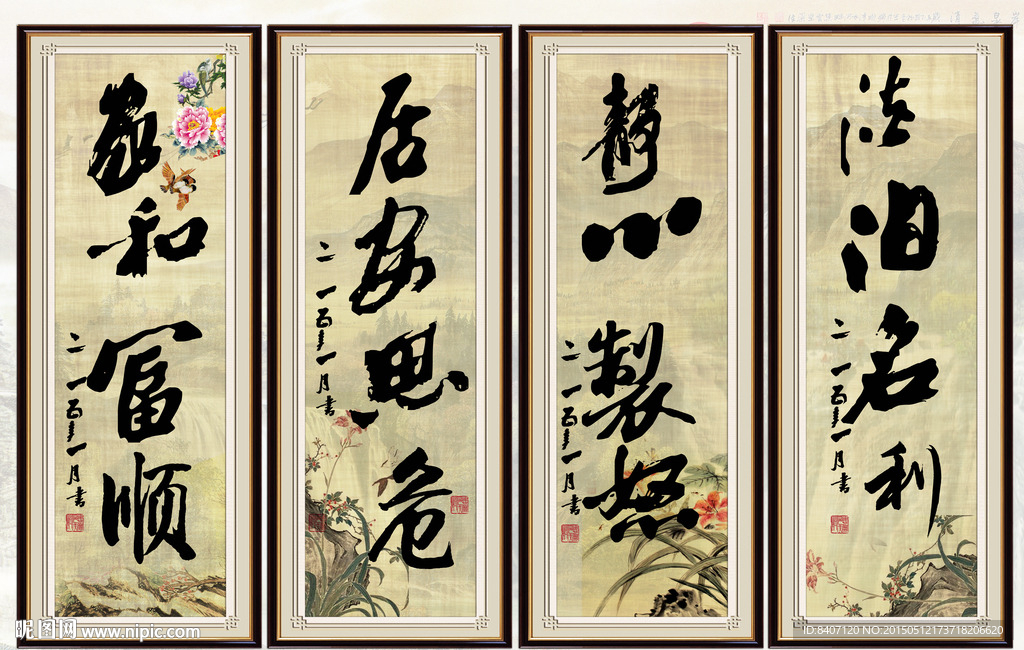 家和富顺
二一五年一月書
居安思危
二一五年一月書
静心製怒
二一五年一月書
淡泊名利
二一五年一月書
昵图网 www.nipic.com
ID:8407120 NO:20150512173718206620